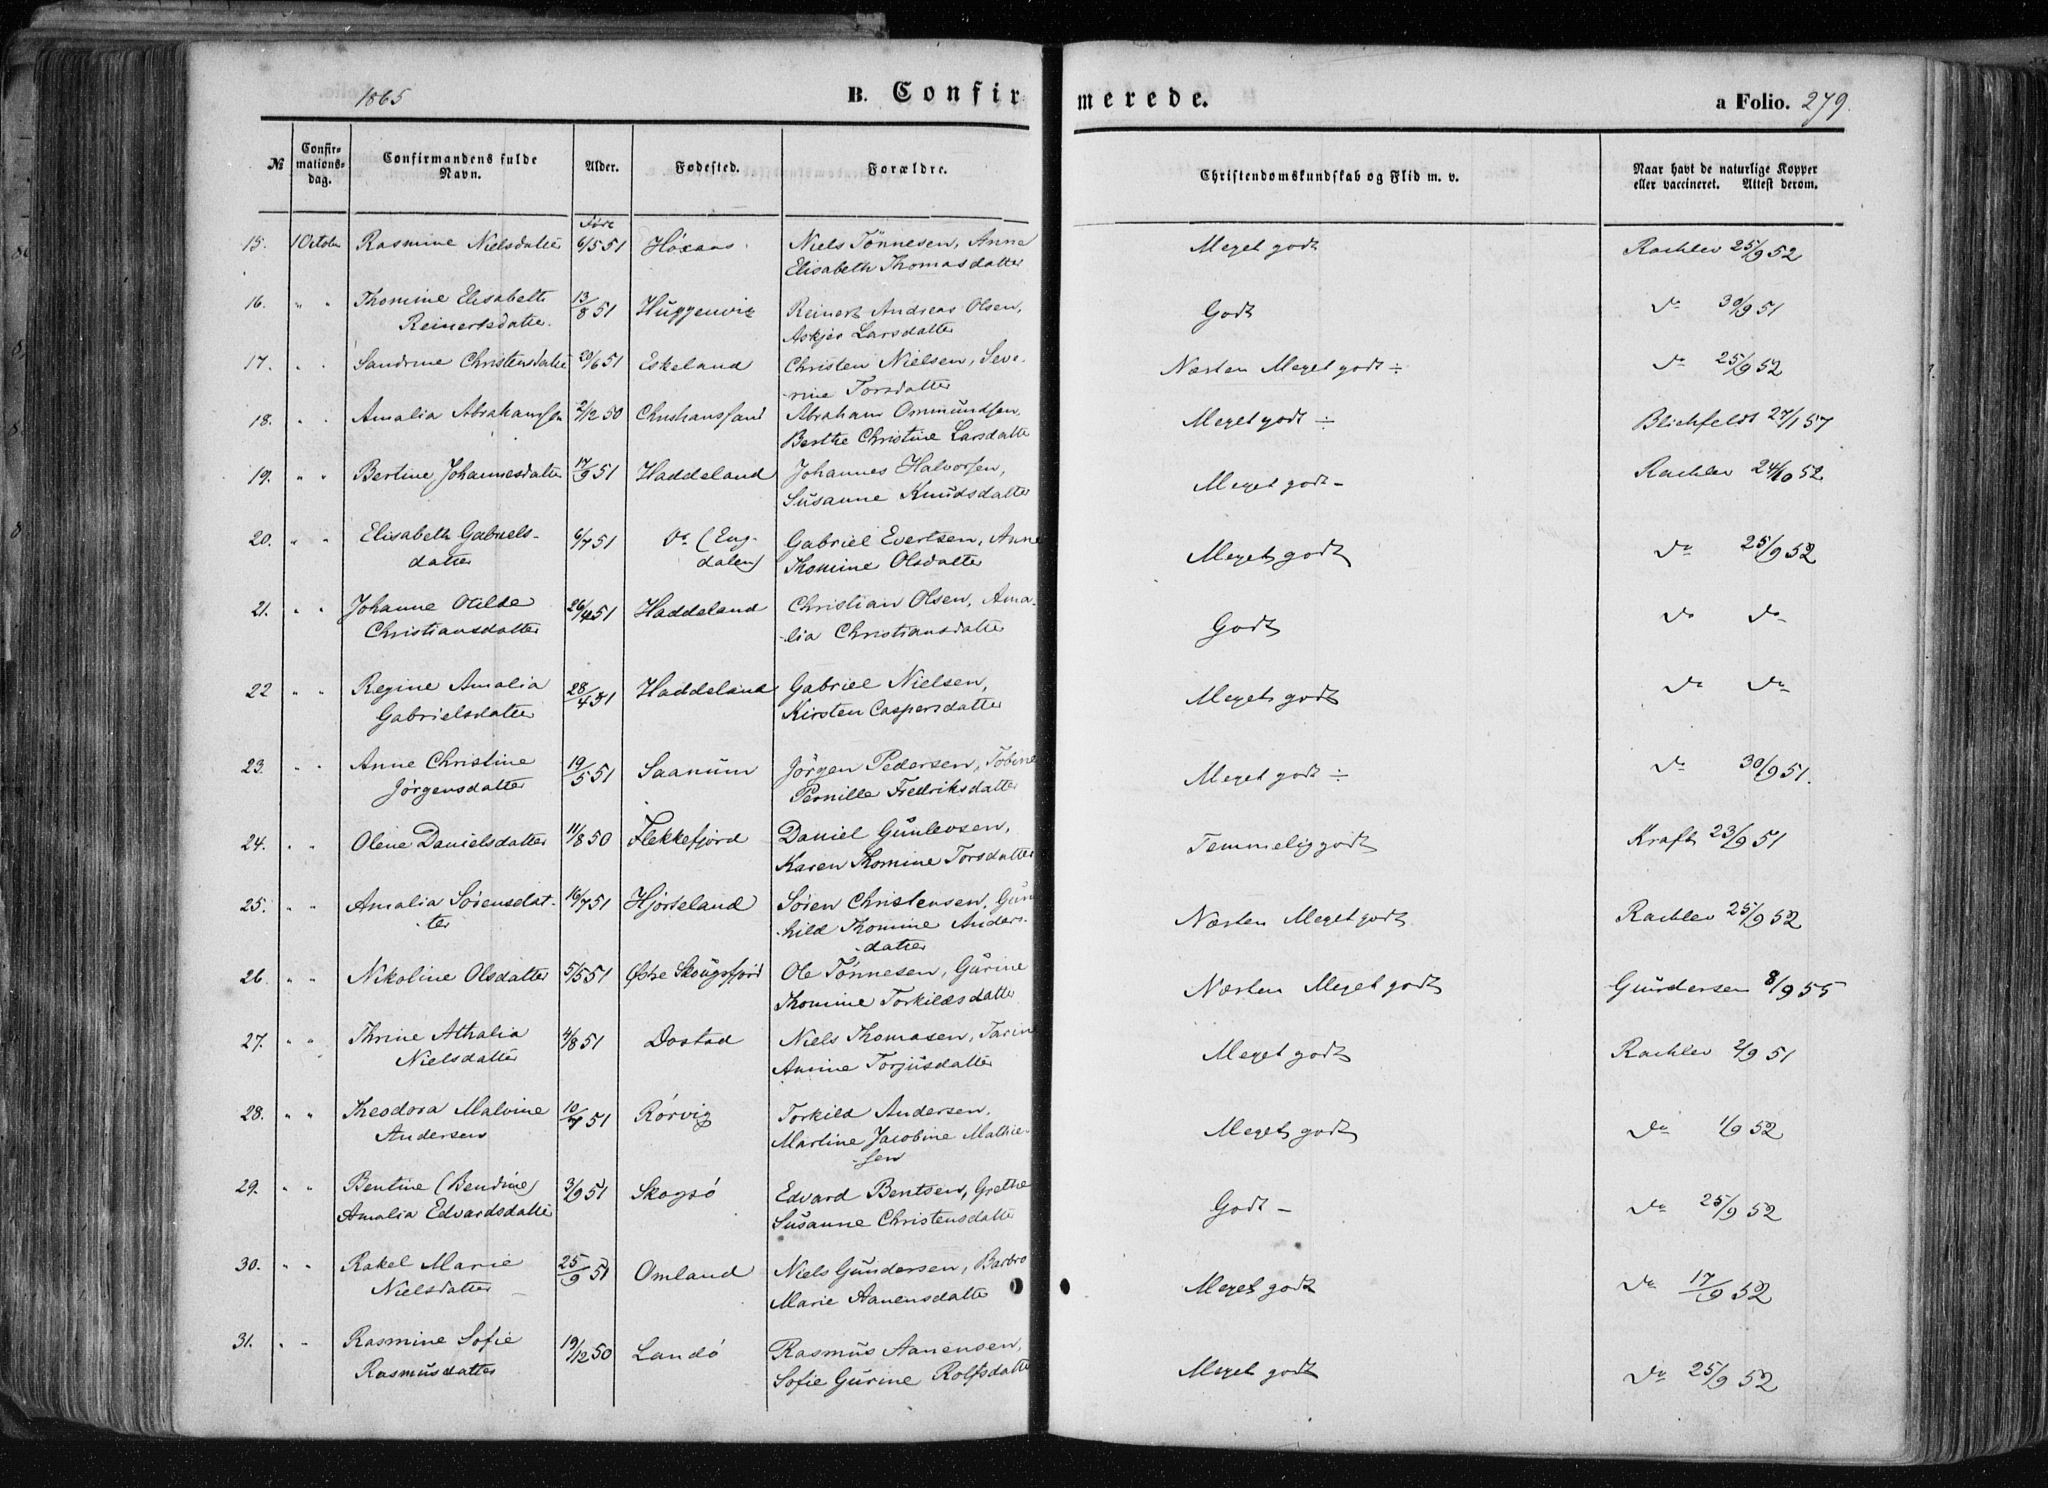 1865 B. Confirmerede. a Folio. 279.
№ Confirmationsdag. Confirmandens fulde Navn. Alder. Fødested. Forældre. Christendomskundskab og Flid m. v. Naar havt de naturlige Kopper eller vaccineret. Attest derom.
Føre
15. 1 Octobr Rasmine Nielsdatter 6/5 51 Høxaas Niels Tönnesen, Anne Meget godt Rachlev 25/9 52
Elisabeth Thomasdatter
16. " " Thomine Elisabeth 13/8 51 Huggenvig Reinert Andreas Olsen, Godt do 30/9 51
Reinertsdatter. Askjer Larsdatter
17. " " Sandrine Christensdatter 20/6 51 Eskeland Christen Nielsen, Seve- Næsten Meget godt ÷ do 25/9 52
rine Torsdatter
18. " " Amalia Abrahamssen 2/12 50 Christianssand Abraham Ommundsen, Meget godt ÷ Blichfeldt 27/1 57
Berthe Christine Larsdatter
19. " " Bertine Johannesdatter 17/9 51 Haddeland Johannes Halvorsen, Meget godt - Rachlev 24/10 52
Susanne Knudsdatter
20. " " Elisabeth Gabriels- 6/7 51 do (Eng- Gabriel Evertsen, Anne Meget godt do 25/9 52
datter dalen) Thomine Olsdatter
21. " " Johanne Otilde 26/4 51 Haddeland Christian Olsen, Ama- Godt do do
Christiansdatter lia Christiansdatter
22 " " Regine Amalia 28/4 51 Haddeland Gabriel Nielsen, Meget godt do do
Gabrielsdatter Kirsten Caspersdatter
23. " " Anne Christine 19/5 51 Saanum Jörgen Pedersen, Tobine Meget godt ÷ do 30/9 51.
Jørgensdatter Pernille Fredriksdatter
24. " " Olene Danielsdatter 11/8 50 Flekkefjord Daniel Gunlevsen, Temmelig godt Kraft 23/9 51
Karen Thomine Torsdatter
25. " " Amalia Sørensdat- 16/7 51 Hjorteland Sören Christensen, Gun Næsten Meget godt Rachlev 25/9 52
ter hild Thomine Anders-
datter
26. " " Nikoline Olsdatter 5/5 51 Østre Skougsfjord Ole Tønnesen, Gurine Næsten Meget godt Gundersen 8/9 55
Thomine Torkildsdatter
27. " " Thrine Athalia 4/8 51 Dostad Niels Thomasen, Tarine Meget godt Rachlev 2/9 51
Nielsdatter Anine Torjusdatter
28. " " Theodora Malvine 10/7 51 Rørvig Torkild Andersen. Meget godt do 1/9 52
Andersen Martine Jacobine Mathie-
sen
29. " " Bentine (Bendine) 3/9 51 Skogsö Edvard Bentsen, Grethe Godt - do 25/9 52
Amalia Edvardsdatter Susanne Christensdatter
30. " " Rakel Marie 25/9 51 Omland Niels Gundersen, Barbro Meget godt do 17/9 52
Nielsdatter Marie Aanensdatter
31. " " Rasmine Sofie 19/12 50 Landö Rasmus Aanensen, Meget godt do 25/9 52
Rasmusdatter Sofie Gurine Rolfsdatter